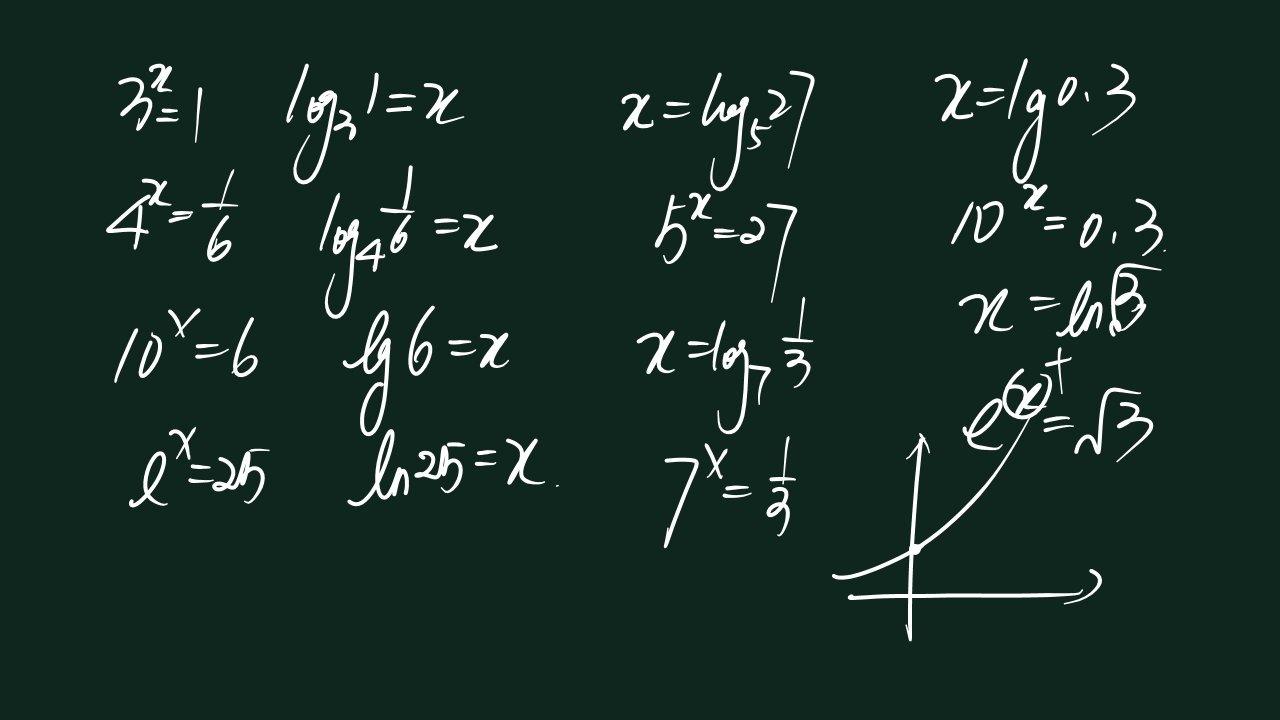 3^x=1
log_3 1=x
4^x=1/6
log_4 1/6=x
10^x=6
lg6=x
e^x=25
ln25=x
x=log_5 27
5^x=27
x=log_7 1/3
7^x=1/3
x=lg0.3
10^x=0.3
x=ln√3
e^(x)+=√3